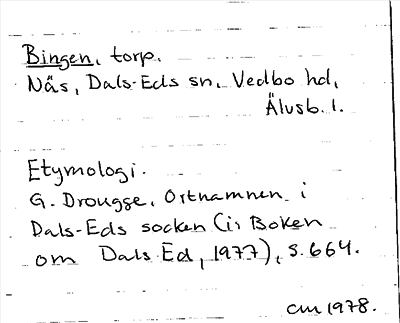 Bingen, torp.
Näs, Dals-Eds sn, Vedbo hd,
Älvsb. l.
Etymologi.
G. Drougge, Ortnamnen i
Dals-Eds socken (i: Boken
om Dals-Ed, 1977), s. 664.
cm 1978.